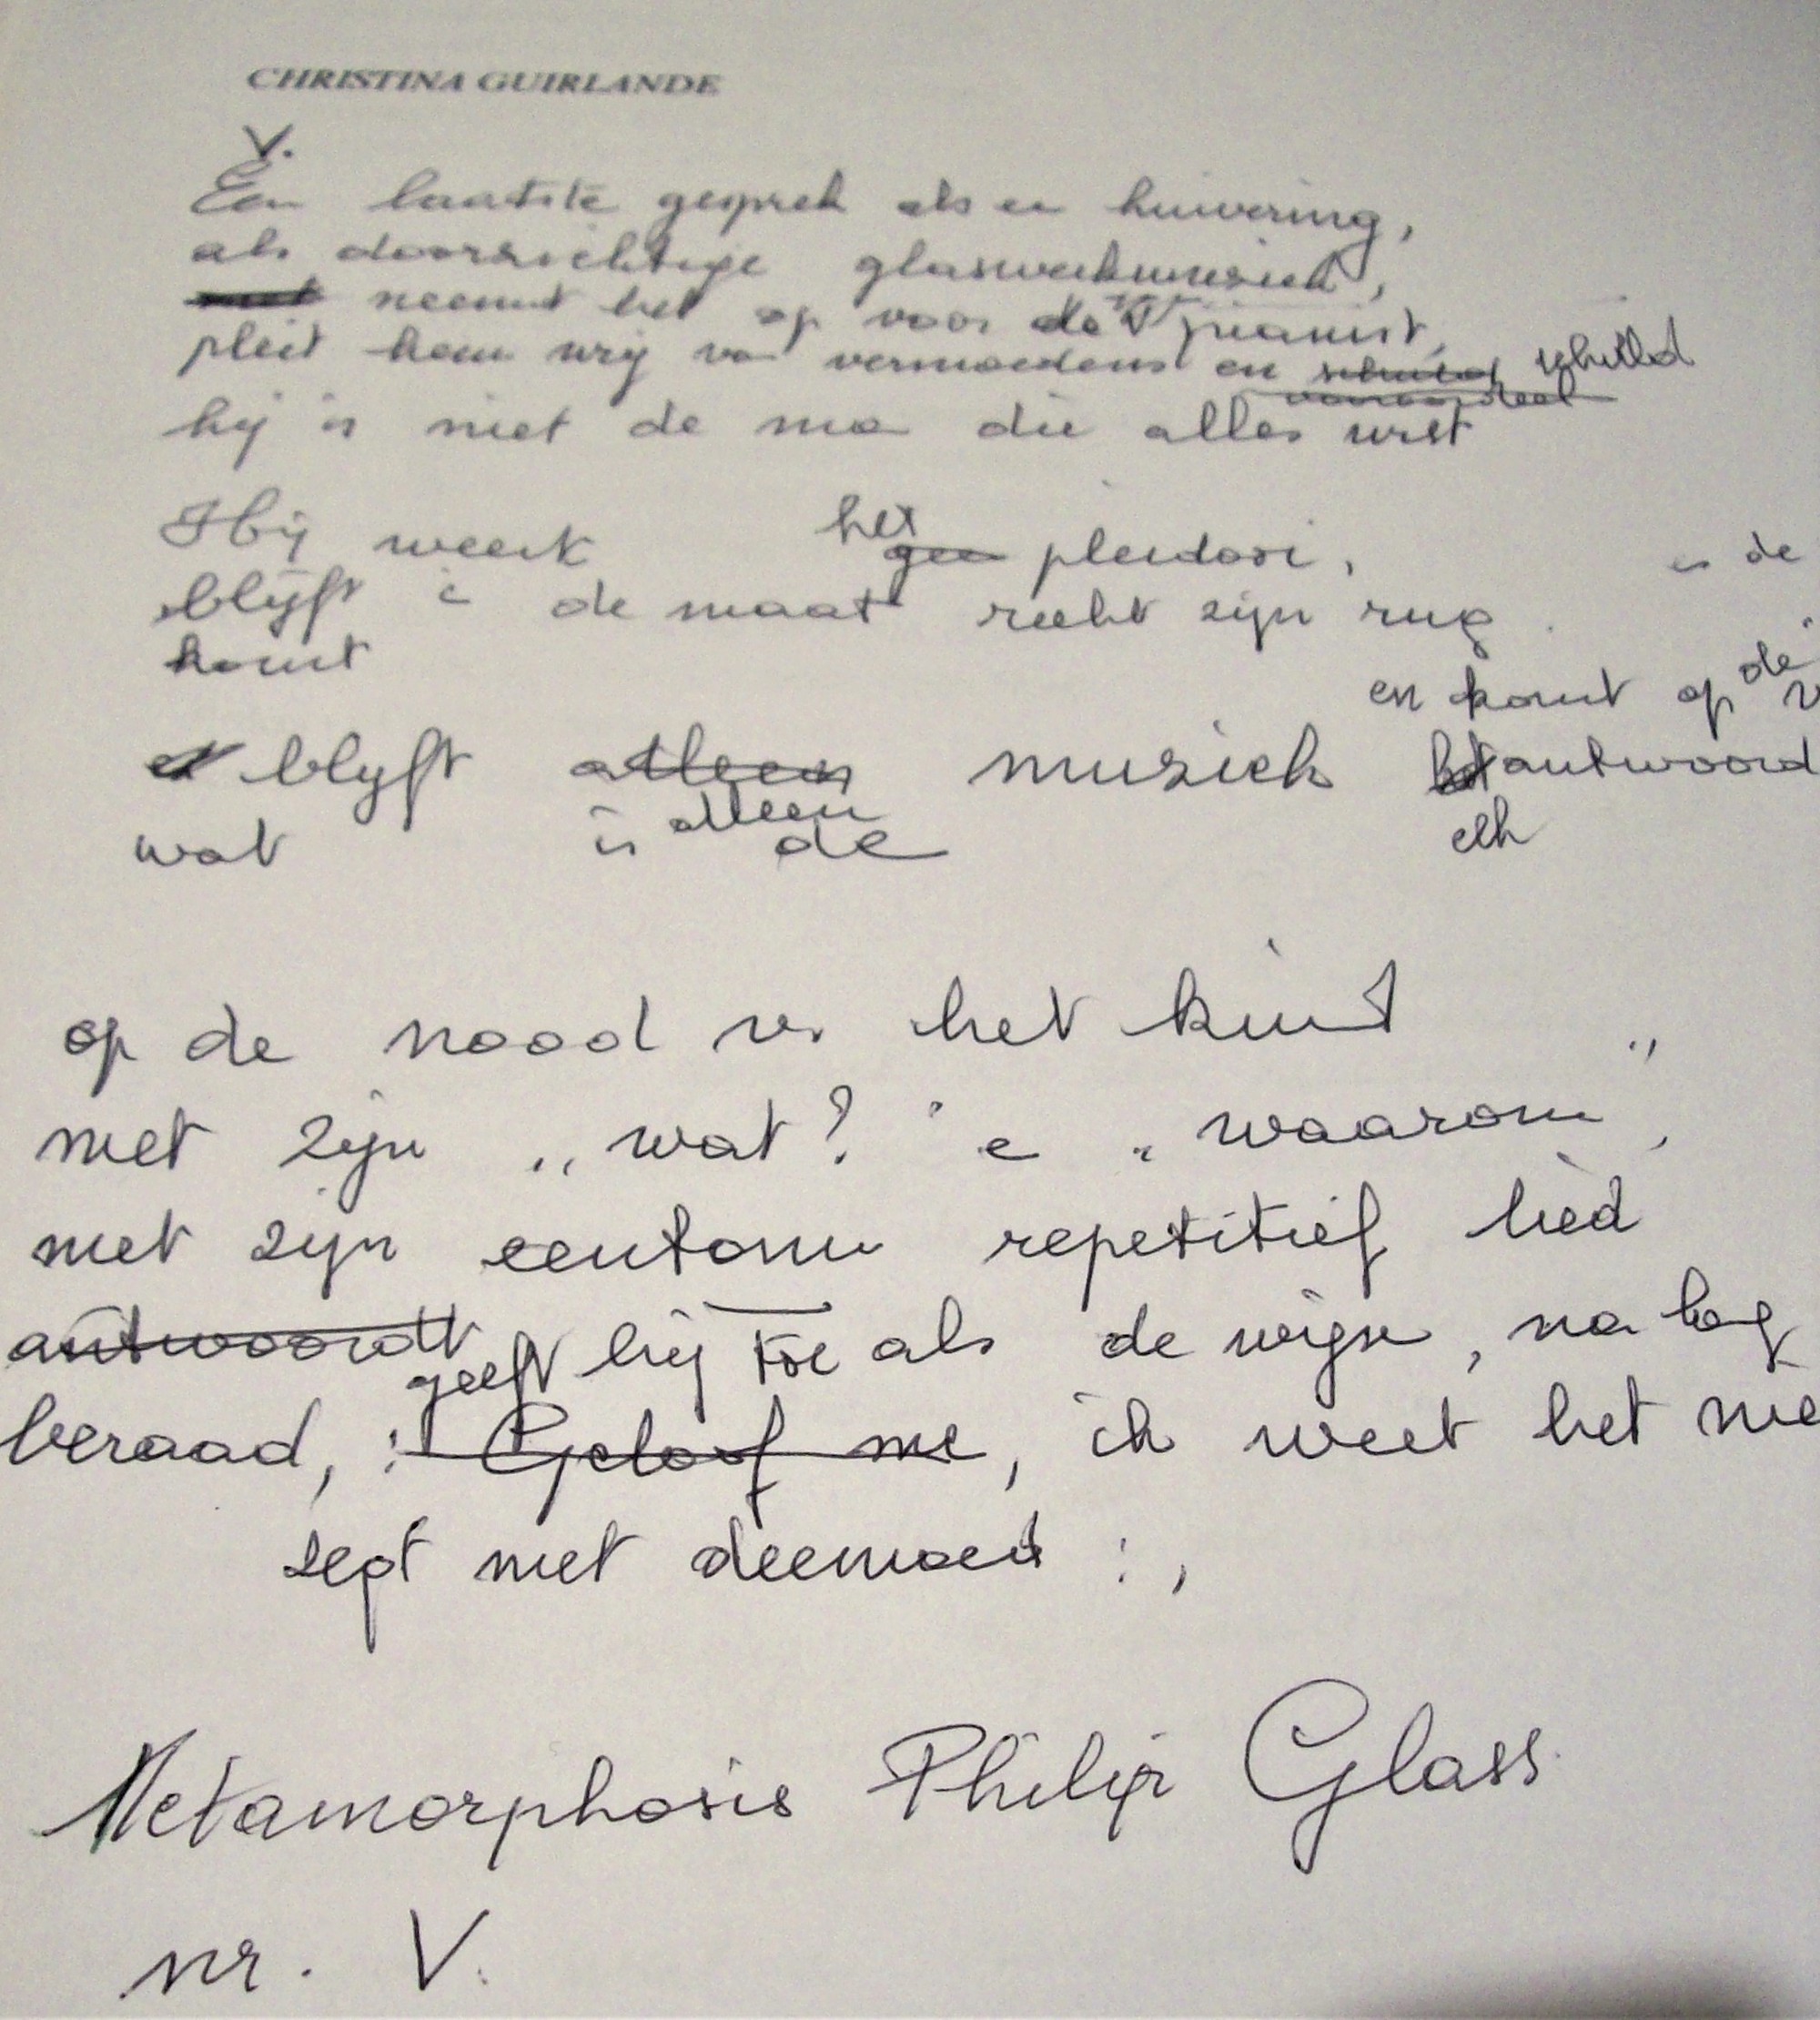 CHRISTINA GUIRLANDE
V.
Een laatste gesprek als een huivering,
als doorzichtige glaswerkmuziek,
neemt het op voor de pianist,
pleit hem vrij van vermoedens en schuld schuld
vooroordeel
hij is niet de man die alles wist
Hij weerk het
geen pleidooi, en de
blijft in de maat recht zijn rug.
komt
en komt op de
blijft alleen musiek het antwoord
alleen elk
wat is de
op de nood v. het kind
met zijn „wat?" e „waarom",
met zijn eentonu repetitief lied
antwoordt geeft hij toe als de wijze, na lag
beraad, : Geloof me, ik weet het nie
zegt met deemoed : ,
Metamorphosis Philip Glass.
nr. V.